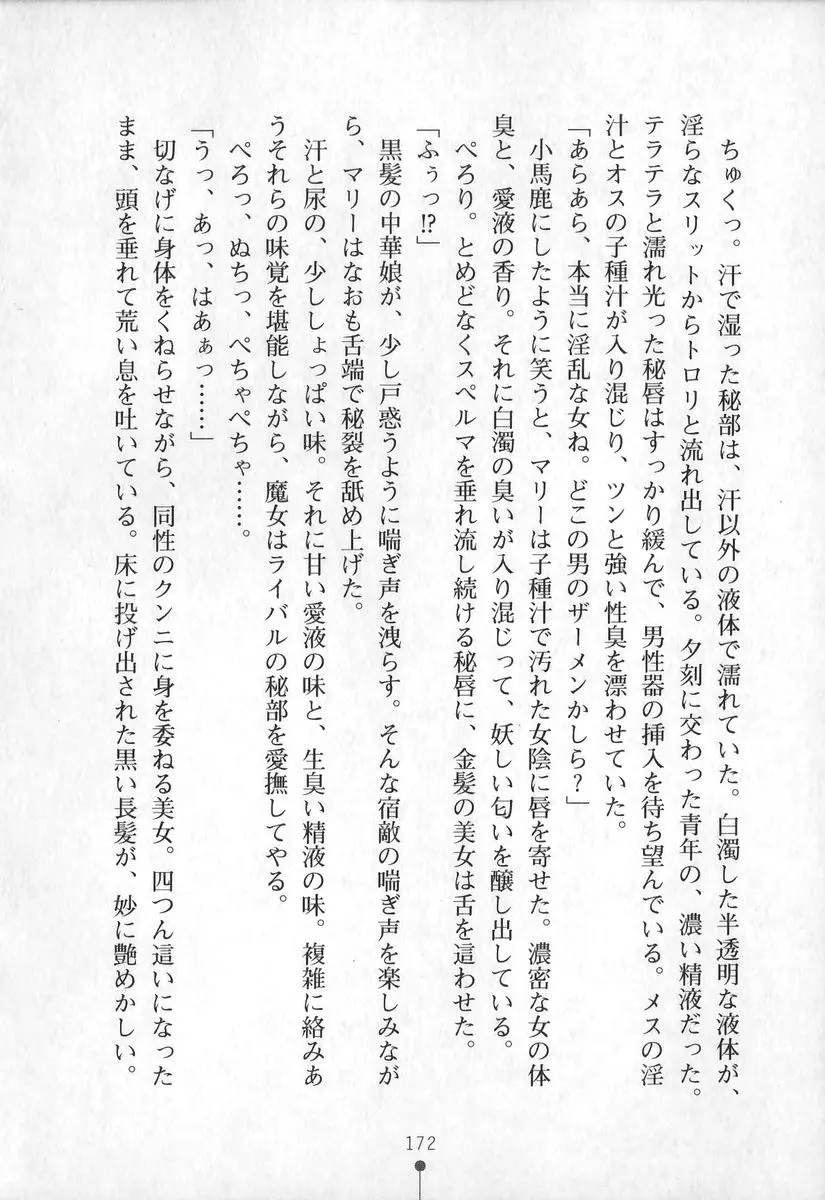 ちゅくっ。汗で湿った秘部は、汗以外の液体で濡れていた。白濁した半透明な液体が、
淫らなスリットからトロリと流れ出している。夕刻に交わった青年の、濃い精液だった。
テラテラと濡れ光った秘唇はすっかり緩んで、男性器の挿入を待ち望んでいる。メスの淫
汁とオスの子種汁が入り混じり、ツンと強い性臭を漂わせていた。
「あらあら、本当に淫乱な女ね。どこの男のザーメンかしら？」
小馬鹿にしたように笑うと、マリーは子種汁で汚れた女陰に唇を寄せた。濃密な女の体
臭と、愛液の香り。それに白濁の臭いが入り混じって、妖しい匂いを醸し出している。
ぺろり。とめどなくスペルマを垂れ流し続ける秘唇に、金髪の美女は舌を這わせた。
「ふぅっ!?」
黒髪の中華娘が、少し戸惑うように喘ぎ声を洩らす。そんな宿敵の喘ぎ声を楽しみなが
ら、マリーはなおも舌端で秘裂を舐め上げた。
汗と尿の、少ししょっぱい味。それに甘い愛液の味と、生臭い精液の味。複雑に絡みあ
うそれらの味覚を堪能しながら、魔女はライバルの秘部を愛撫してやる。
ぺろっ、ぬちっ、ぺちゃぺちゃ……。
「うっ、あっ、はあぁっ……」
切なげに身体をくねらせながら、同性のクンニに身を委ねる美女。四つん這いになった
まま、頭を垂れて荒い息を吐いている。床に投げ出された黒い長髪が、妙に艶めかしい。
172